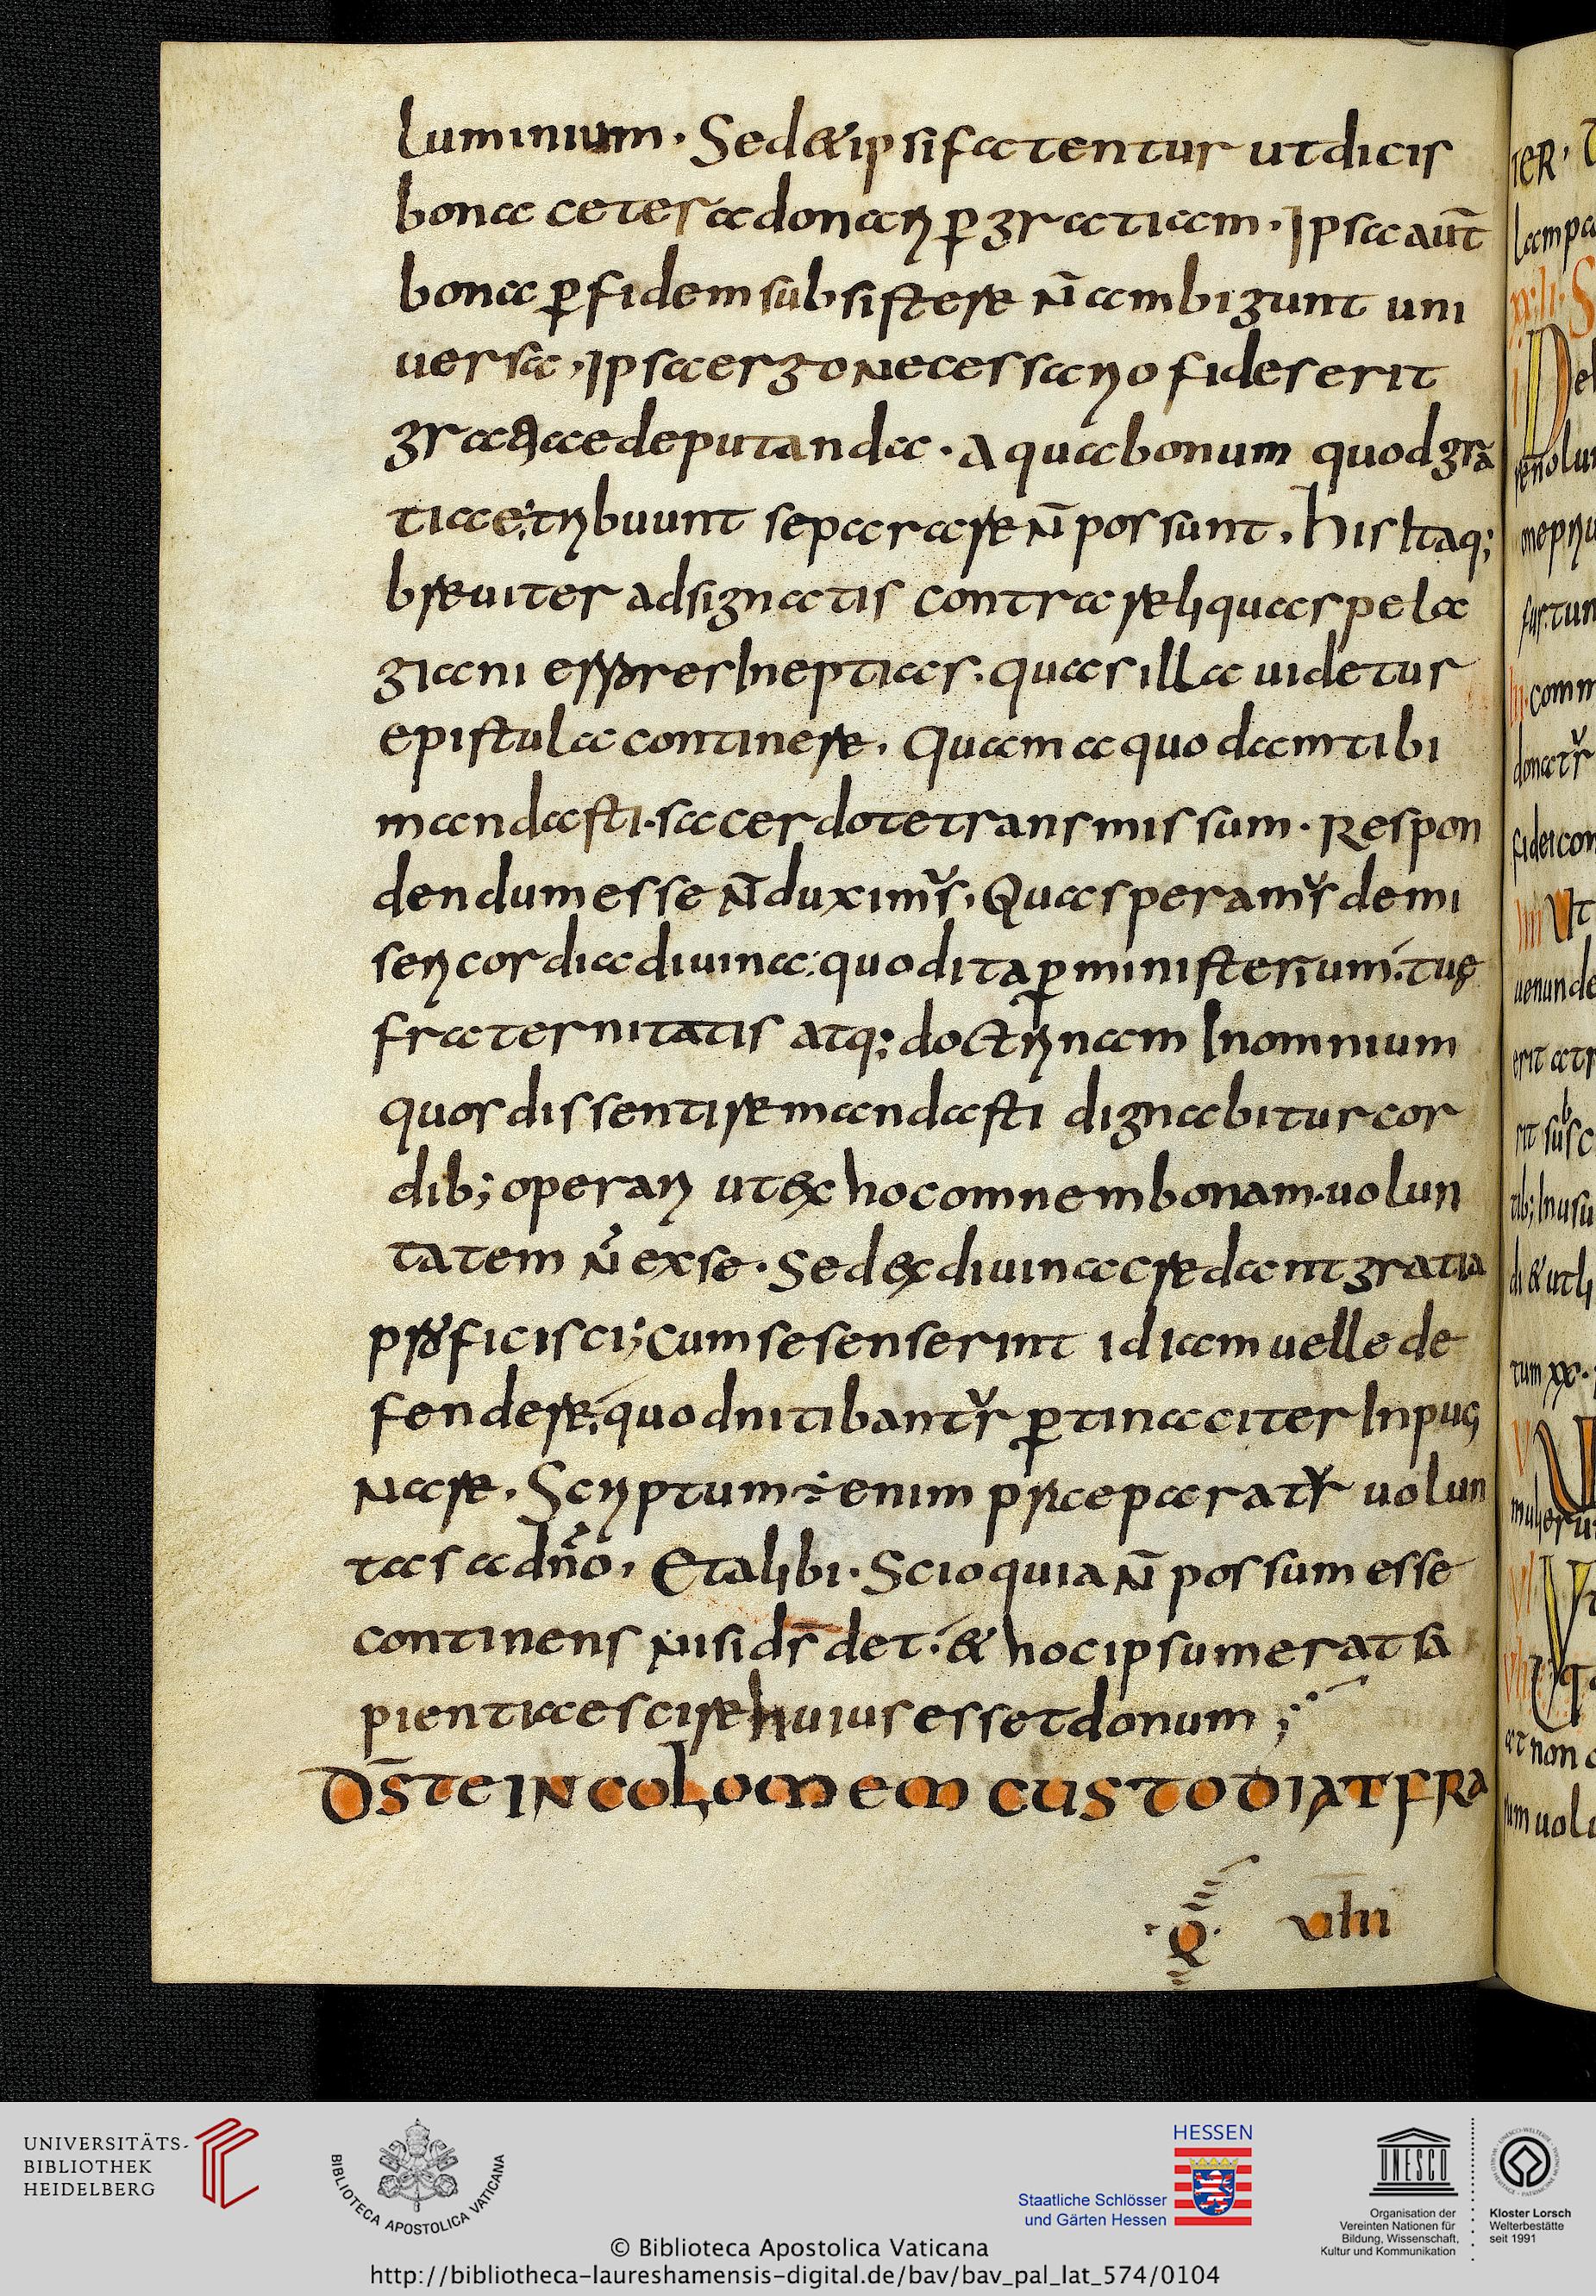 luminium. Sed & ipsi fatentur ut dicis
bona cetera donari p̱ gratiam. Ipsa aut̄
bona p̱ fidem subsistere n̄ ambigunt uni
uersa. Ipsa ergo necessario fides erit
gratiae deputanda. A qua bonum quod gra
tiae tribuunt separare n̄ possunt. his Itaq;
breuiter adsignatis contra reliquas pela
giani errores Ineptias. quas illa uidetur
epistula continere. Quam a quodam tibi
mandasti. sacerdote transmissum. Respon
dendum esse n̄ duximus. Qua speramus de mi
sericordia diuina: quod ita p̱ ministerium tuę
fraternitatis atq; doctrinam In omnium
quos dissentire mandasti dignabitur cor
dib; operari ut ex hoc omnem bonam uolun
tatem n̄ ex se. Sed ex diuina credant gratia
proficisci; Cum se senserint id iam uelle de
fendere; quod nitibantur p̱tinaciter Inpug
nare. Scriptum ÷ enim praeparatur uolun
tas a dn̄o. Et alibi. Scio quia n̄ possum esse
continens nisi ds̄ det. & hoc ipsum erat sa
pientiae scire huius esset donum;
DS̄ TE INCOLOMEM CUSTODIAT FRA
Q VIIII
TER.
UNIVERSITÄTS-
BIBLIOTHEK
HEIDELBERG
BIBLIOTECA APOSTOLICA VATICANA
HESSEN
Staatliche Schlösser
und Gärten Hessen
UNESCO
Organisation der
Vereinten Nationen für
Bildung, Wissenschaft,
Kultur und Kommunikation
Kloster Lorsch
Welterbestätte
seit 1991
© Biblioteca Apostolica Vaticana
http://bibliotheca-laureshamensis-digital.de/bav/bav_pal_lat_574/0104